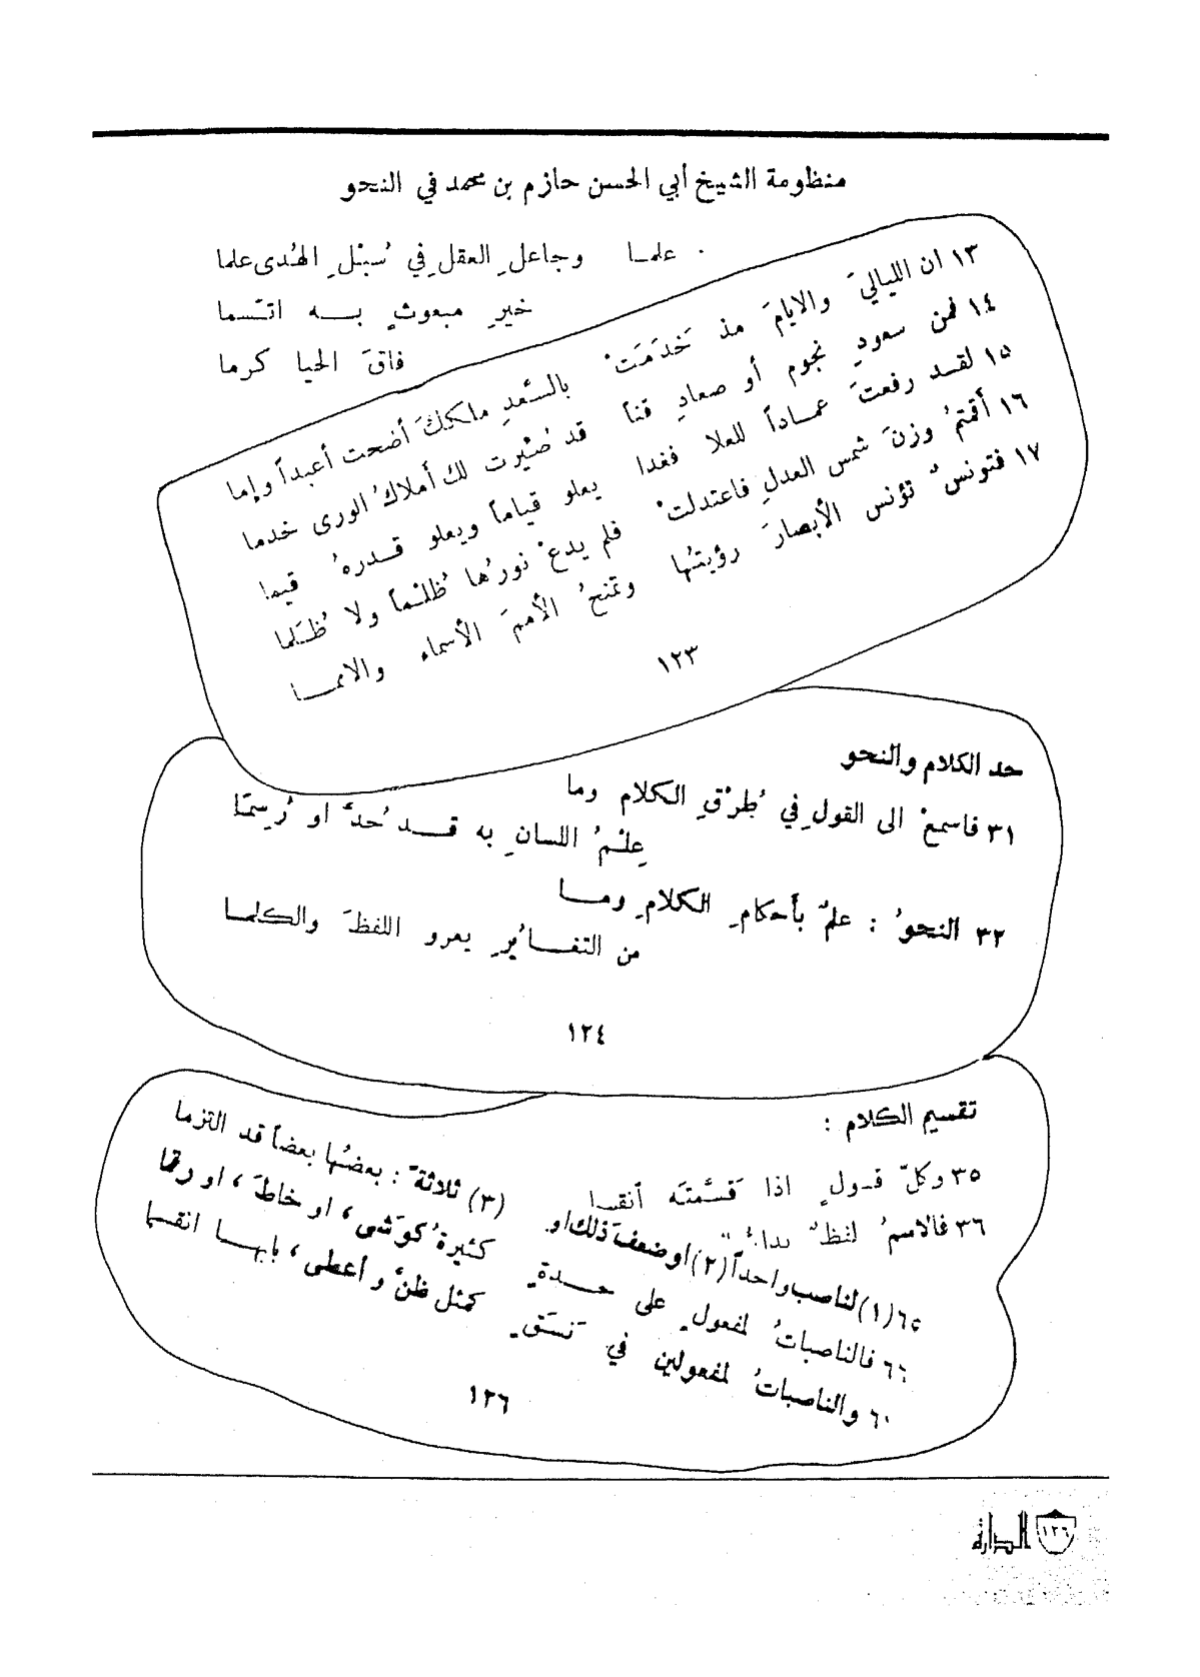 منظومة الشيخ أبي الحسن حازم بن محمد في النحو
علما وجاعل العقل في سُبْل الهُدى علما
خيرِ مبعوثٍ به اتسما
فاقَ الحيا كرما
١٣ ان الليالي والايامَ مذ خَدَمَتْ بالسّعدِ ملككَ أضحت أعبداً وإما
١٤ فمن سعودِ نجوم أو صعادِ قناً قد صُيّرت لك أملاكُ الورى خدما
١٥ لقد رفعتَ عماداً للعلا فغدا يعلو قياماً ويعلو قدرهُ قيما
١٦ أقمتمُ وزنَ شمس العدلِ فاعتدلتْ فلم يدعْ نورُها ظُلْماً ولا ظُلَما
١٧ فتونسٌ تؤنس الأبصارَ رؤيتُها وتمنحُ الأممَ الأسماء والامما
١٢٣
حد الكلام والنحو
٣١ فاسمعْ الى القولِ في طُرْقِ الكلام وما
عِلْمُ اللسانِ به قد حُدَّ او رُسِمَا
٣٢ النحوُ : علمٌ بأحكامِ الكلامِ وما
من التغايُرِ يعرو اللفظَ والكلما
١٢٤
تقسيم الكلام :
٣٥ وكلّ قولٍ اذا قَسَّمتَه أنقسما
٣٦ فالاسمُ لفظٌ
٦٥ (١) لناصب واحداً (٢) او ضعفَ ذلك او (٣) ثلاثةً : بعضُها بعضاً قد التزما
٦٦ فالناصباتُ لمفعولٍ على حدةٍ كثيرةُ كوَشى، او خاطَ، او رقما
٦٠ والناصباتُ لمفعولين في نَسَقٍ كمثل ظنَّ وأعطى، بابها انقسما
١٢٦
١٢٦ الدارة